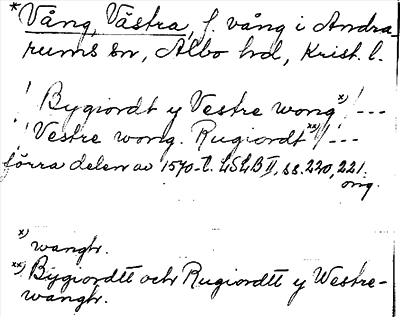 *Vång, Västra, f. vång i Andra-
rums sn, Albo hd, Krist. l.
! Bygiordt y Vestre wong x) ! ---
! Vestre wong. Rugiordt xx) ! ---
förra delen av 1570-t. LSLB II, ss. 220, 221.
ong.
x) wangh.
xx) Bÿgiordtt och Rugiordtt y Westre-
wangh.